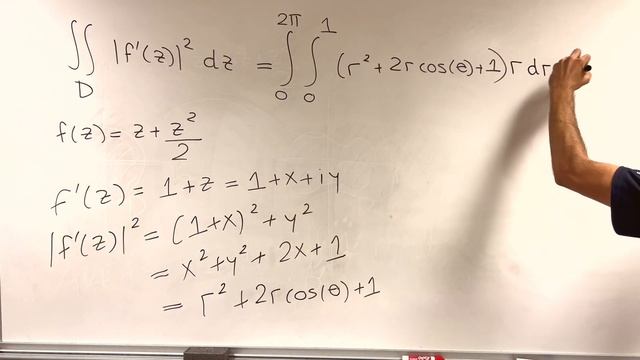 ∬_D |f'(z)|² dz = ∫₀^{2π} ∫₀^1 (r² + 2r cos(θ) + 1) r dr
f(z) = z + z²/2
f'(z) = 1 + z = 1 + x + iy
|f'(z)|² = (1+x)² + y²
= x² + y² + 2x + 1
= r² + 2r cos(θ) + 1